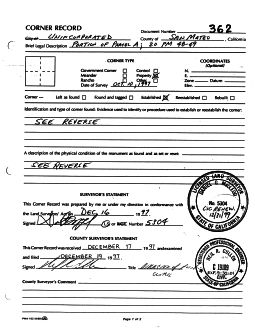 CORNER RECORD
Document Number 362
City of UNINCORPORATED County of SAN MATEO, California
Brief Legal Description PORTION OF PARCEL A; 30 PM 48-49
CORNER TYPE
COORDINATES
(Optional)
Government Corner Control
Meander Property
Rancho Other
Date of Survey OCT 14, 1997
N.
E.
Zone Datum
Elev.
Corner — Left as found Found and tagged Established Reestablished Rebuilt
Identification and type of corner found: Evidence used to identify or procedure used to establish or reestablish the corner:
SEE REVERSE
A description of the physical condition of the monument as found and as set or reset:
SEE REVERSE
SURVEYOR'S STATEMENT
This Corner Record was prepared by me or under my direction in conformance with
the Land Surveyors' Act on DEC 16 1997.
Signed LS or RCE Number 5304
LICENSED LAND SURVEYOR
No. 5304
STATE OF CALIFORNIA
COUNTY SURVEYOR'S STATEMENT
This Corner Record was received DECEMBER 17 1997 and examined
and filed DECEMBER 19 1997.
Signed Title
County Surveyor's Comment
REGISTERED PROFESSIONAL ENGINEER
CIVIL
STATE OF CALIFORNIA
Page 1 of 2